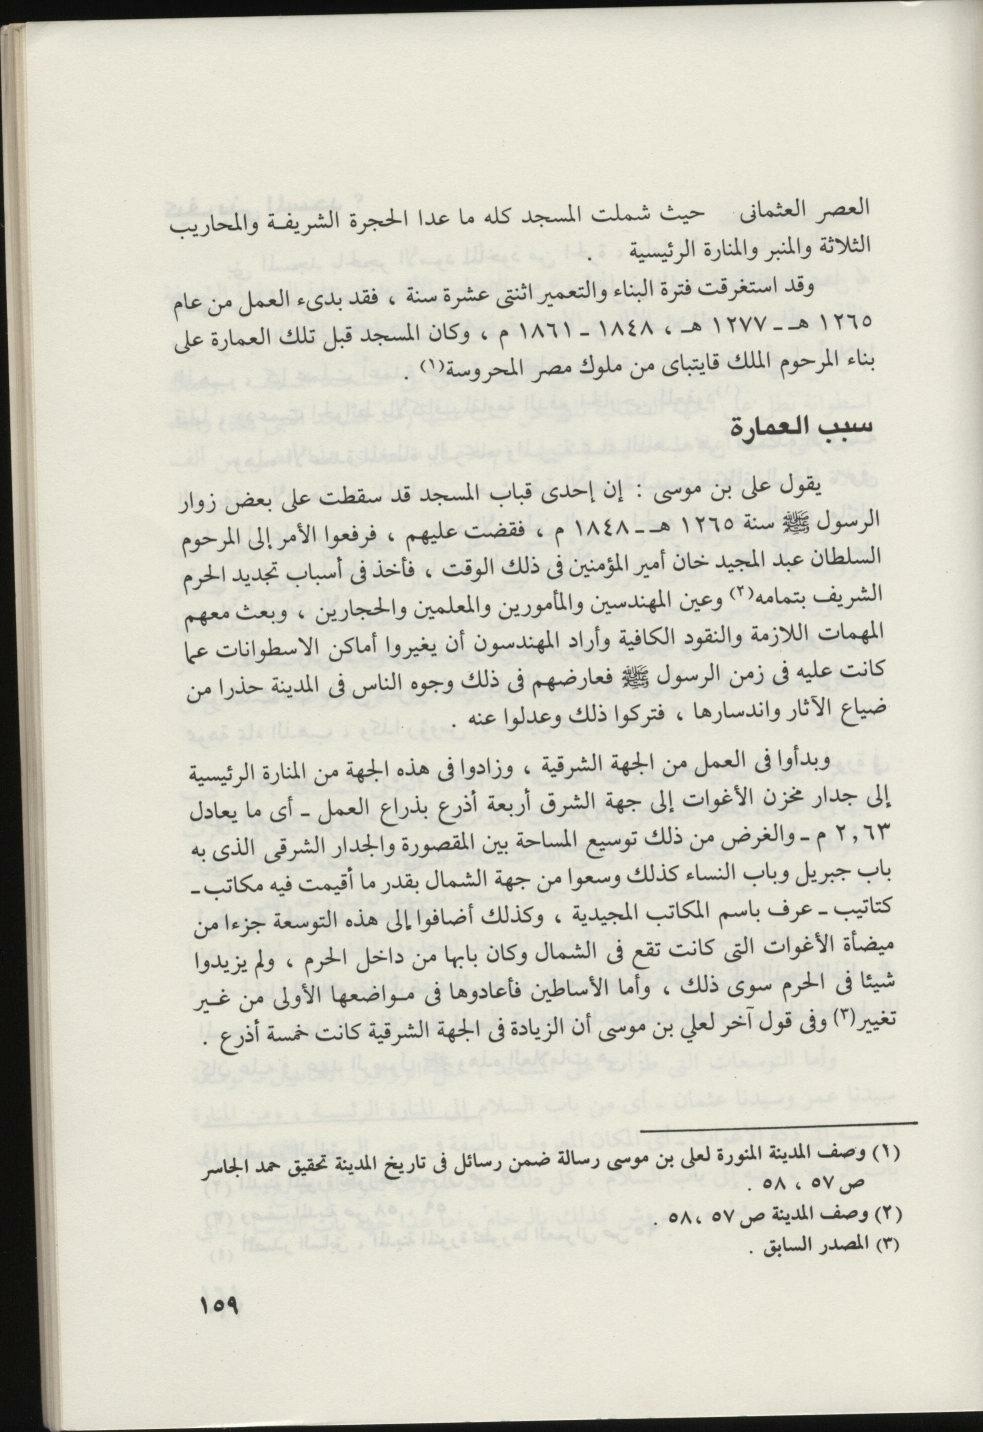 العصر العثمانى حيث شملت المسجد كله ما عدا الحجرة الشريفة والمحاريب
الثلاثة والمنبر والمنارة الرئيسية .
وقد استغرقت فترة البناء والتعمير اثنتى عشرة سنة ، فقد بدىء العمل من عام
١٢٦٥ هـ ـ ١٢٧٧ هـ ، ١٨٤٨ ـ ١٨٦١ م ، وكان المسجد قبل تلك العمارة على
بناء المرحوم الملك قايتباى من ملوك مصر المحروسة(١) .
سبب العمارة
يقول على بن موسى : إن إحدى قباب المسجد قد سقطت على بعض زوار
الرسول ﷺ سنة ١٢٦٥ هـ ـ ١٨٤٨ م ، فقضت عليهم ، فرفعوا الأمر إلى المرحوم
السلطان عبد المجيد خان أمير المؤمنين فى ذلك الوقت ، فأخذ فى أسباب تجديد الحرم
الشريف بتمامه(٢) وعين المهندسين والمأمورين والمعلمين والحجارين ، وبعث معهم
المهمات اللازمة والنقود الكافية وأراد المهندسون أن يغيروا أماكن الاسطوانات عما
كانت عليه فى زمن الرسول ﷺ فعارضهم فى ذلك وجوه الناس فى المدينة حذرا من
ضياع الآثار واندسارها ، فتركوا ذلك وعدلوا عنه .
وبدأوا فى العمل من الجهة الشرقية ، وزادوا فى هذه الجهة من المنارة الرئيسية
إلى جدار مخزن الأغوات إلى جهة الشرق أربعة أذرع بذراع العمل ـ أى ما يعادل
٢,٦٣ م ـ والغرض من ذلك توسيع المساحة بين المقصورة والجدار الشرقى الذى به
باب جبريل وباب النساء كذلك وسعوا من جهة الشمال بقدر ما أقيمت فيه مكاتب ـ
كتاتيب ـ عرف باسم المكاتب المجيدية ، وكذلك أضافوا إلى هذه التوسعة جزءا من
ميضأة الأغوات التى كانت تقع فى الشمال وكان بابها من داخل الحرم ، ولم يزيدوا
شيئا فى الحرم سوى ذلك ، وأما الأساطين فأعادوها فى مواضعها الأولى من غير
تغيير(٣) وفى قول آخر لعلي بن موسى أن الزيادة فى الجهة الشرقية كانت خمسة أذرع .
(١) وصف المدينة المنورة لعلى بن موسى رسالة ضمن رسائل فى تاريخ المدينة تحقيق حمد الجاسر
ص ٥٧ ، ٥٨ .
(٢) وصف المدينة ص ٥٧ ،٥٨ .
(٣) المصدر السابق .
١٥٩